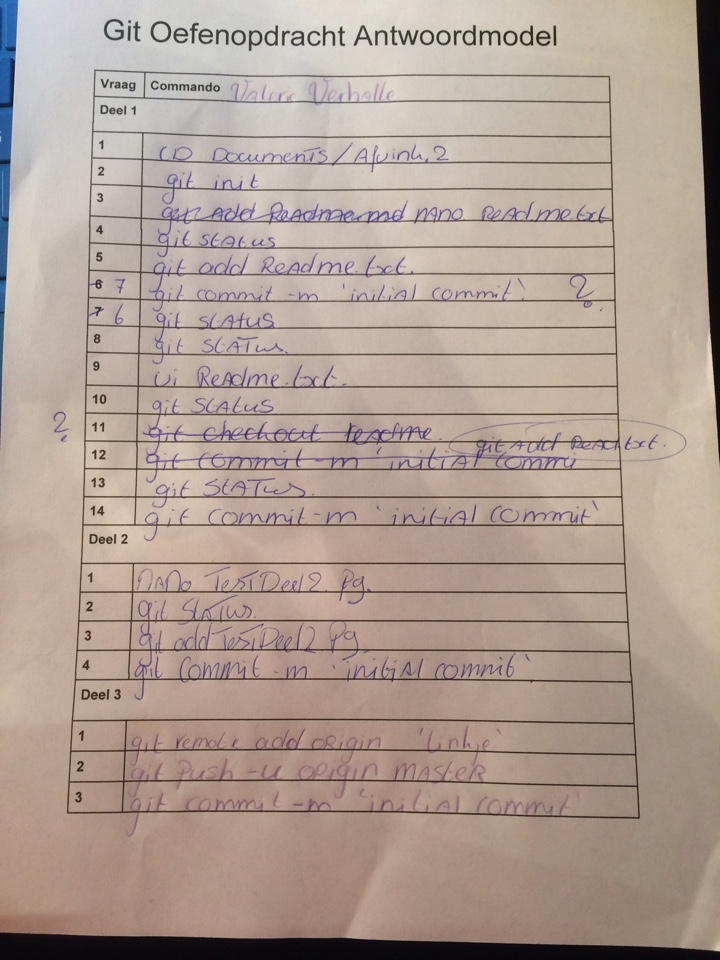 Git Oefenopdracht Antwoordmodel
Vraag Commando Valerie Verhalle
Deel 1
1 CD Documents/Afvink.2
2 git init
3 git add Readme.md nano Readme.txt
4 git status
5 git add Readme.txt.
6 7 git commit -m 'initial commit' ?
7 6 git status
8 git status.
9 vi Readme.txt.
10 git status
? 11 git checkout readme. git add Read.txt.
12 git commit -m 'initial commi
13 git status.
14 git commit -m 'initial commit'
Deel 2
1 nano TestDeel2. Pg.
2 git status.
3 git add TestDeel2 Pg.
4 git commit -m 'initial commit'
Deel 3
1 git remote add origin 'linkje'
2 git push -u origin master
3 git commit -m 'initial commit'